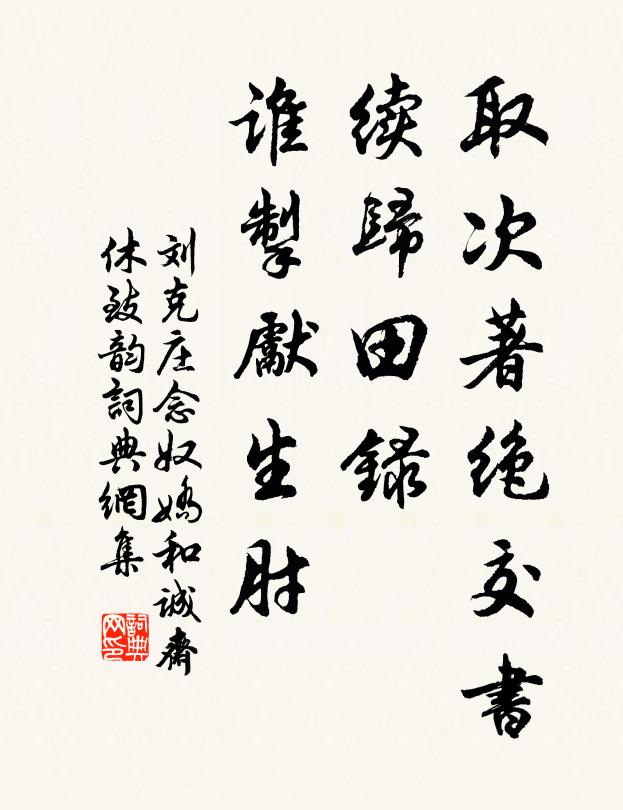 取次著絶交书
续歸田録
谁掣獻生肘
刘克庄念奴嬌和诚齋
休致韵詞典網集
詞典网印